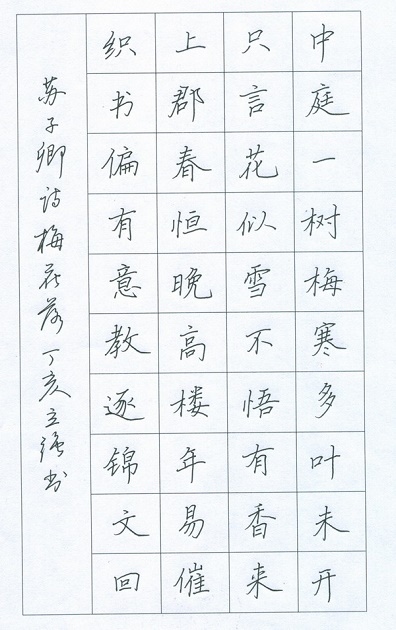 中庭一树梅寒多叶未开
只言花似雪不悟有香来
上郡春恒晚高楼年易催
织书偏有意教逐锦文回
苏子卿诗梅花落丁亥立强书